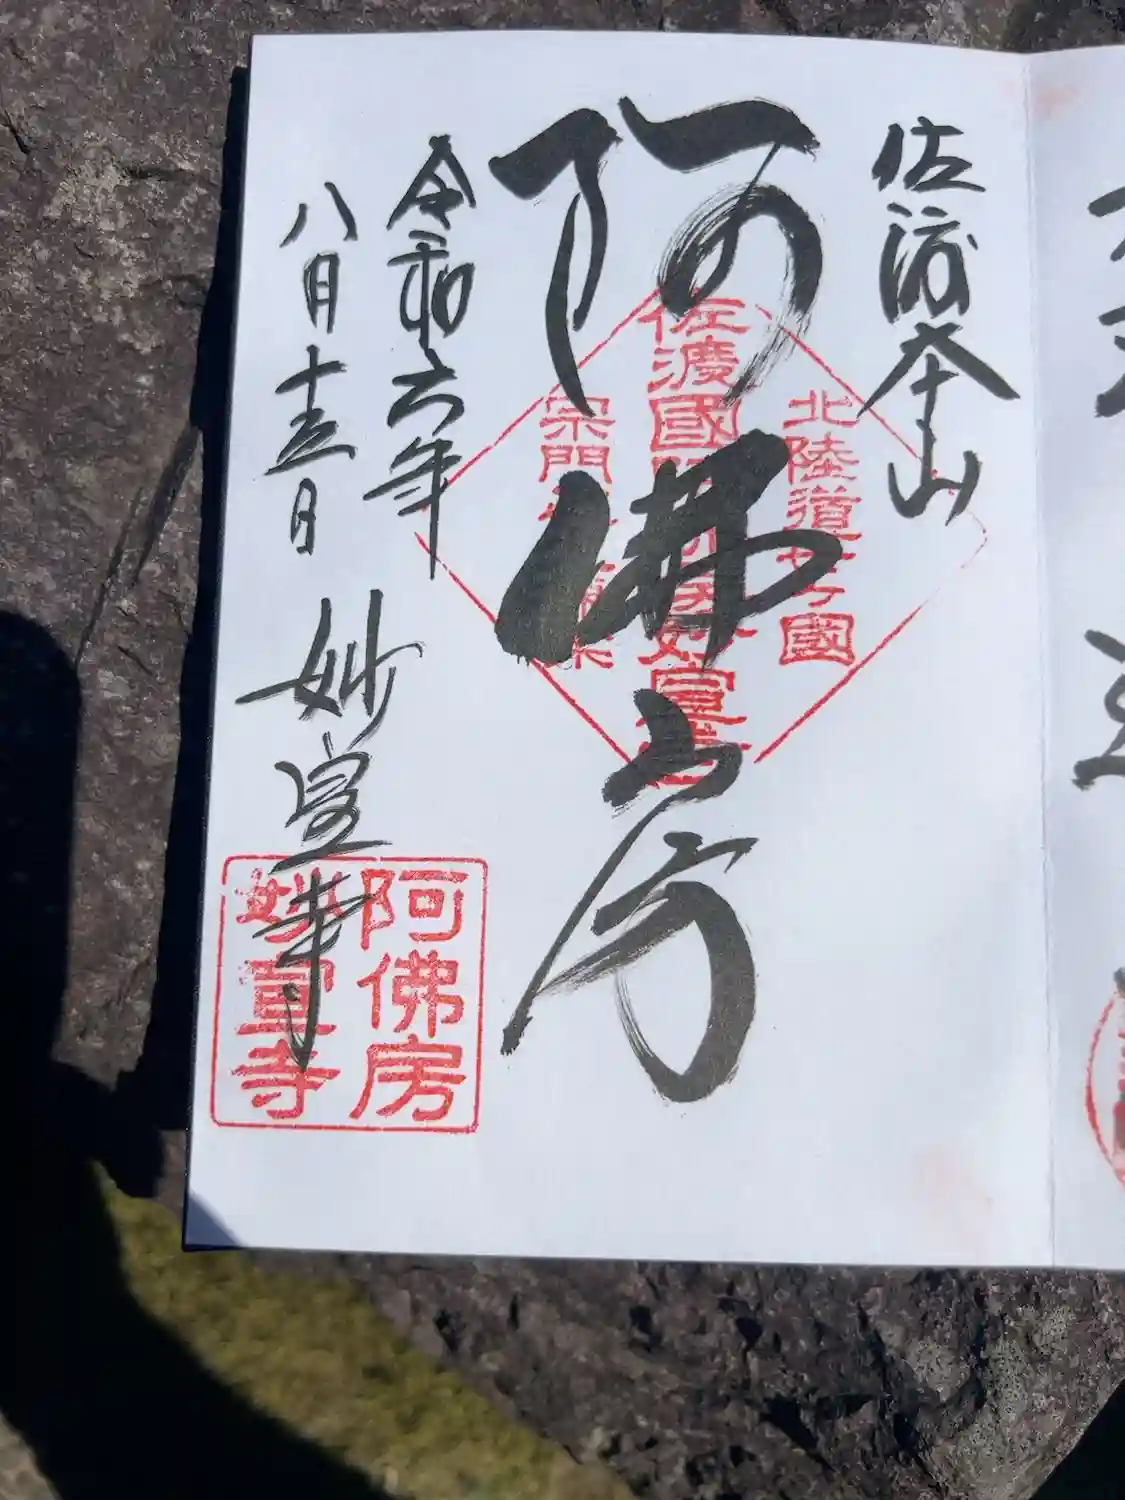 佐渡本山
阿佛房
令和六年
八月十五日
妙宣寺
北陸道七ヶ國
佐渡國阿佛房妙宣寺
宗門
阿佛房
妙宣寺